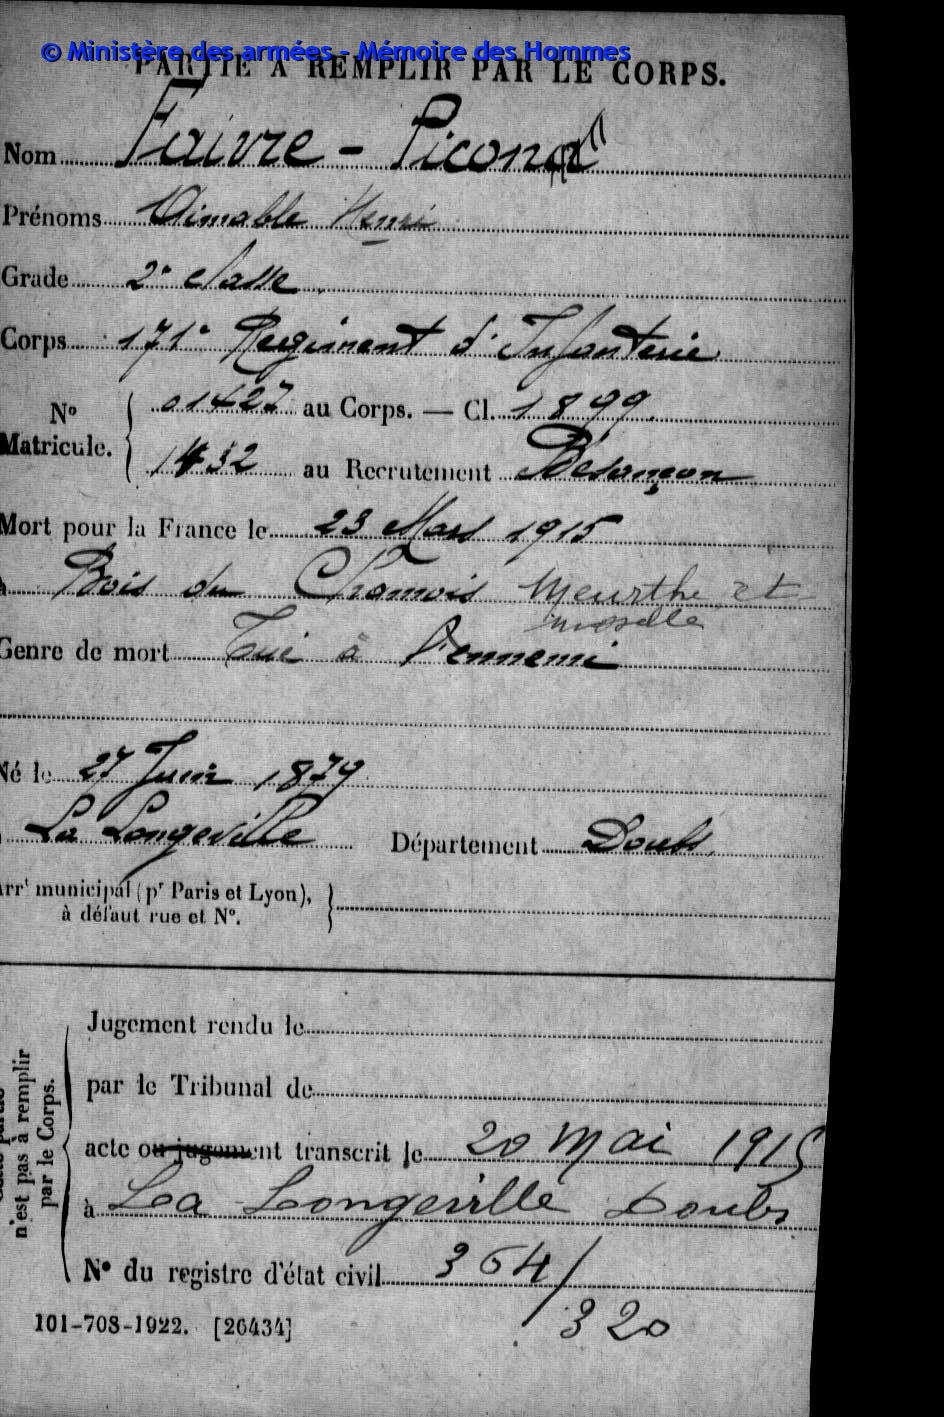 © Ministère des armées - Mémoire des Hommes
PARTIE À REMPLIR PAR LE CORPS.
Nom Faivre - Picon
Prénoms Aimable Henri
Grade 2e classe
Corps 171e Régiment d'Infanterie
No 01427 au Corps. — Cl. 1899.
Matricule. 1432 au Recrutement Besançon
Mort pour la France le 23 Mars 1915
à Bois du Chamois Meurthe et
moselle
Genre de mort Tué à l'ennemi
Né le 27 Juin 1879
à La Longeville Département Doubs
Arrt municipal (pr Paris et Lyon),
à défaut rue et No.
Jugement rendu le
par le Tribunal de
acte ou jugement transcrit le 20 Mai 1915
à La Longeville Doubs
No du registre d'état civil 364/
320
n'est pas à remplir
par le Corps.
101-708-1922. [26434]